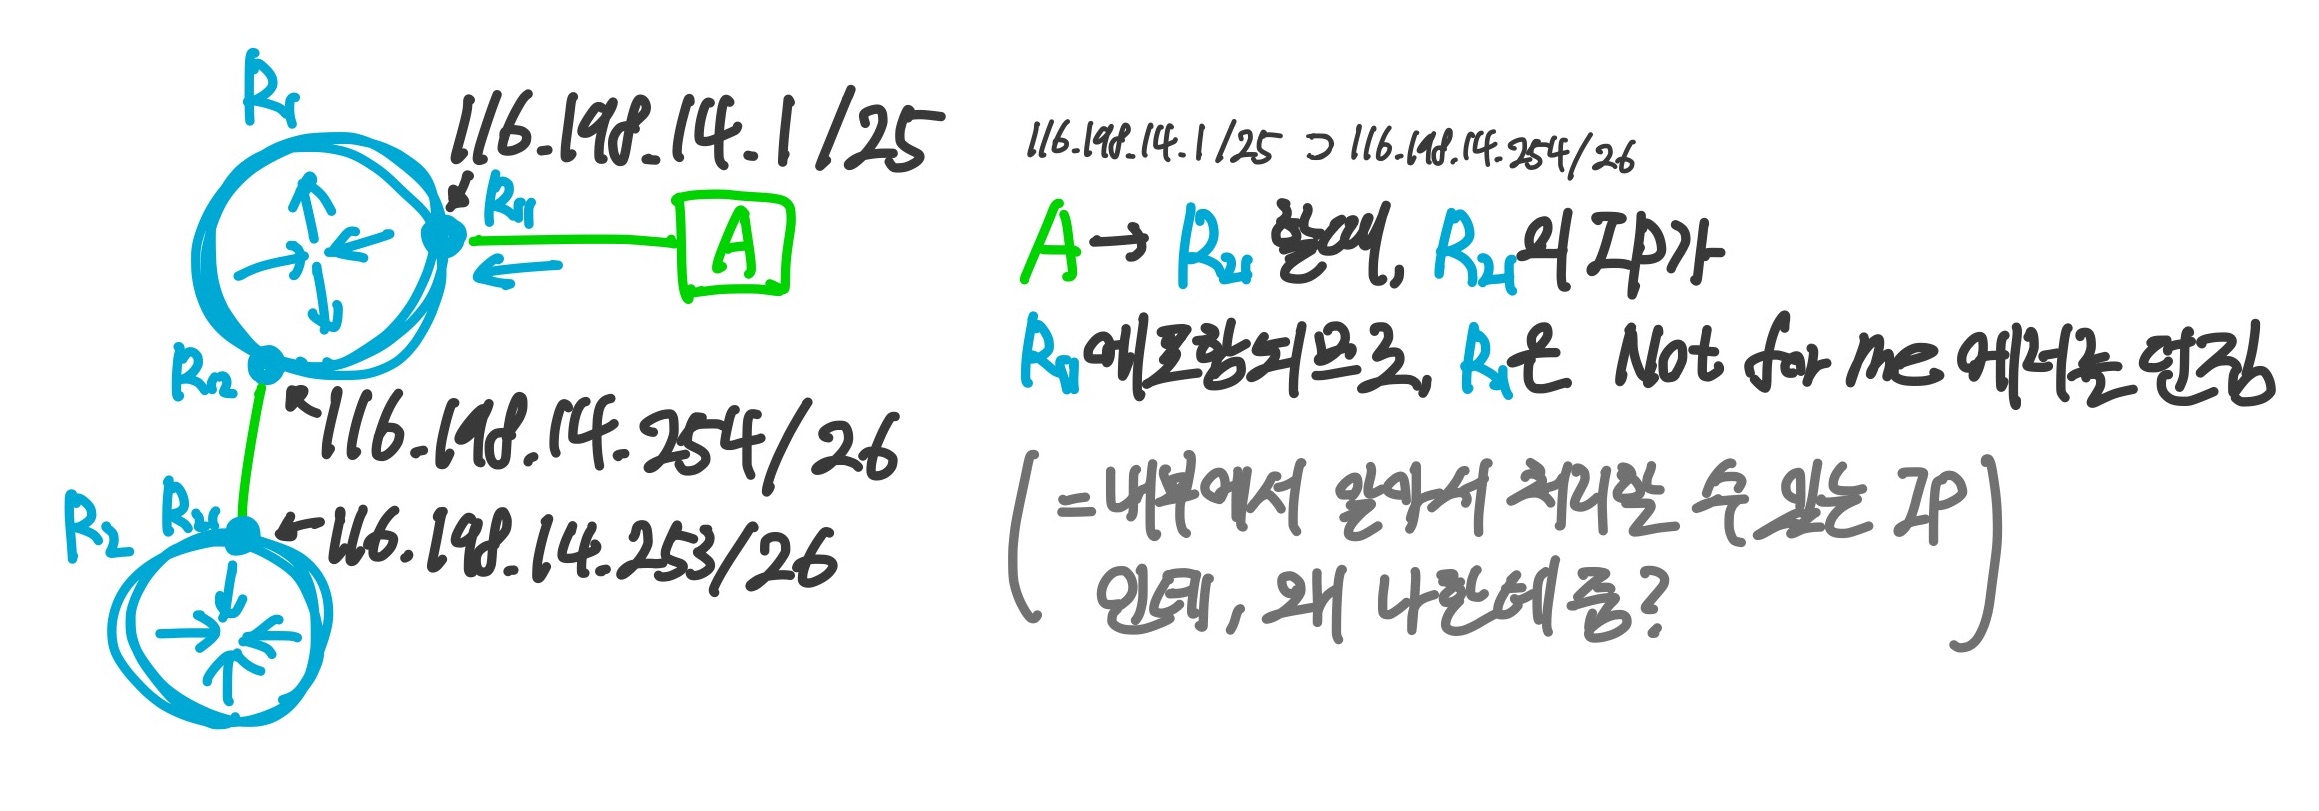 R₁
116.198.14.1/25
R₁₁
A
R₁₂
116.198.14.254/26
R₂
R₂₁
116.198.14.253/26
116.198.14.1/25 ⊃ 116.198.14.254/26
A → R₂₁ 할때, R₂₁의 IP가
R₁₁에 포함되므로, R₁은 Not for me 에러를 던짐
(=내부에서 알아서 처리할 수 있는 IP
인데, 왜 나한테 줌?)